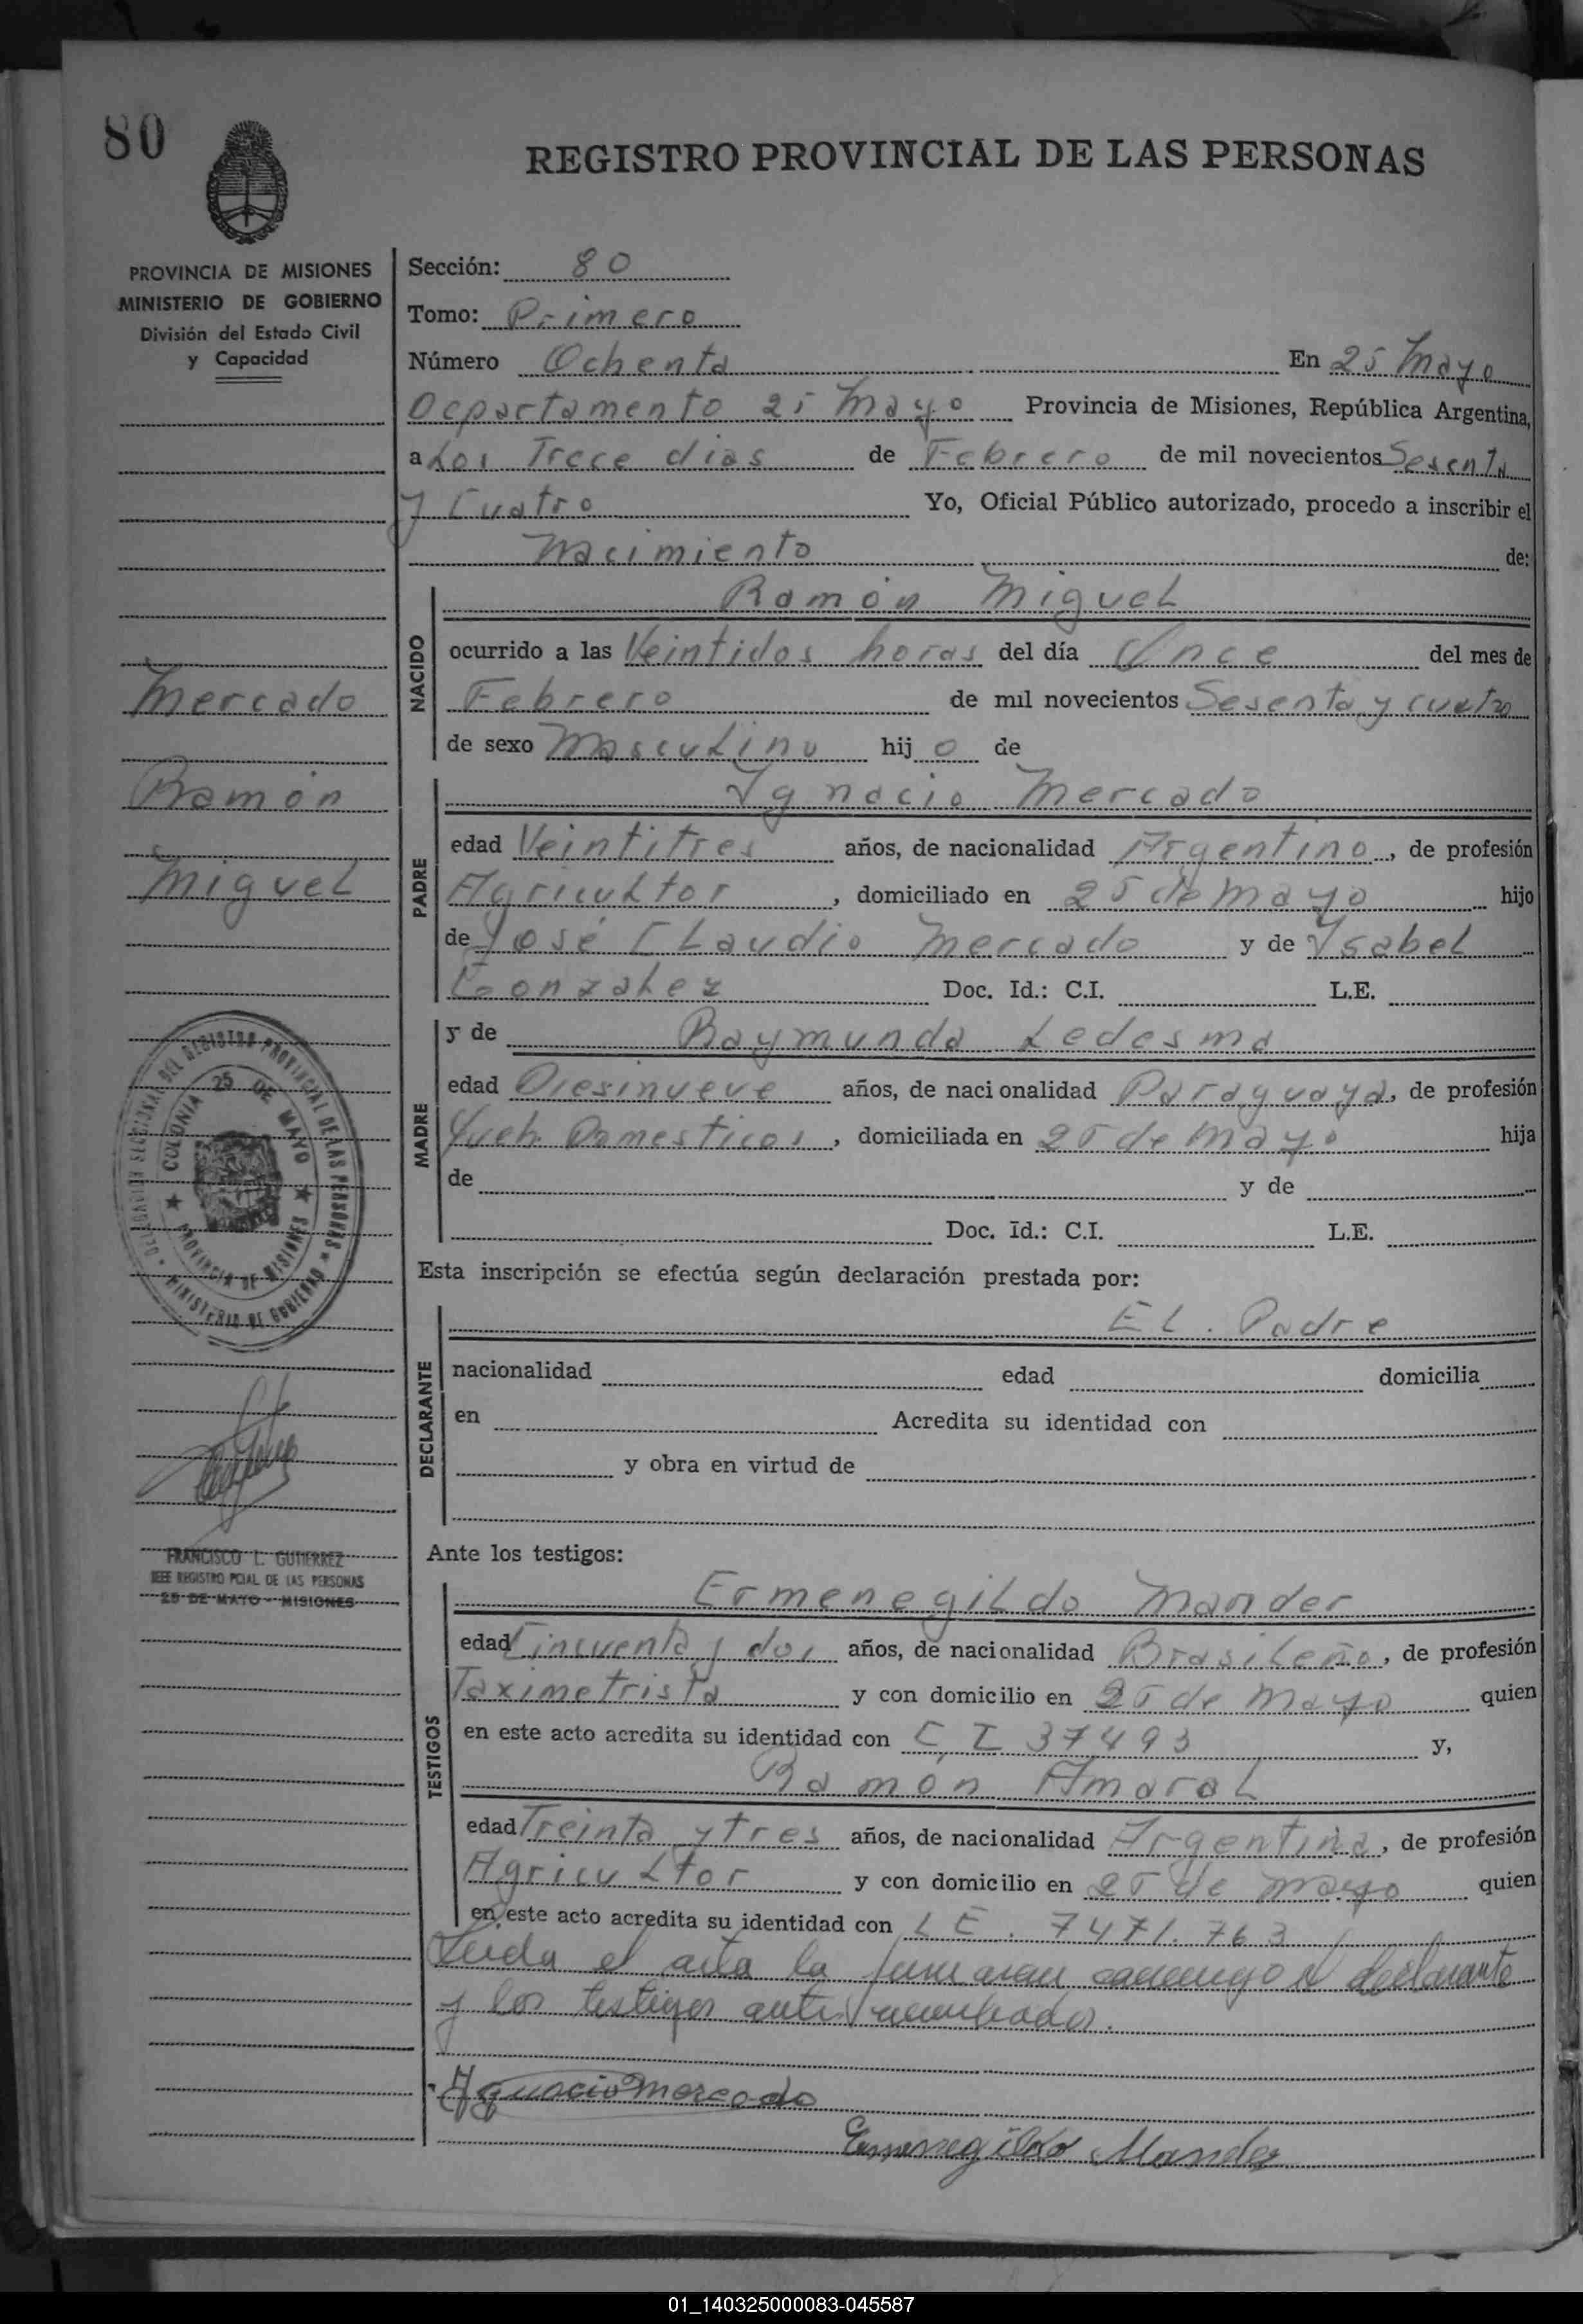 80
REGISTRO PROVINCIAL DE LAS PERSONAS
PROVINCIA DE MISIONES
MINISTERIO DE GOBIERNO
División del Estado Civil
y Capacidad
Mercado
Ramón
Miguel
COLONIA 25 DE MAYO
PROVINCIA DE MISIONES
DEL REGISTRO PROVINCIAL DE LAS PERSONAS
MINISTERIO DE GOBIERNO
FRANCISCO L. GUTIERREZ
JEFE REGISTRO PCIAL DE LAS PERSONAS
25 DE MAYO - MISIONES
Sección: 80
Tomo: Primero
Número Ochenta En 25 Mayo
Departamento 25 Mayo Provincia de Misiones, República Argentina,
a Los Trece dias de Febrero de mil novecientos Sesenta
y Cuatro Yo, Oficial Público autorizado, procedo a inscribir el
Nacimiento de:
NACIDO
Ramón Miguel
ocurrido a las Veintidos horas del día Once del mes de
Febrero de mil novecientos Sesenta y cuatro
de sexo Masculino hijo de
PADRE
Ygnacio Mercado
edad Veintitres años, de nacionalidad Argentino, de profesión
Agricultor, domiciliado en 25 de Mayo hijo
de José Claudio Mercado y de Ysabel
Gonzalez Doc. Id.: C.I. L.E.
MADRE
y de Raymunda Ledesma
edad Diesinueve años, de nacionalidad Paraguaya, de profesión
Queh. Domesticos, domiciliada en 25 de Mayo hija
de y de
Doc. Id.: C.I. L.E.
Esta inscripción se efectúa según declaración prestada por:
DECLARANTE
EL. Padre
nacionalidad edad domicilia
en Acredita su identidad con
y obra en virtud de
Ante los testigos:
TESTIGOS
Ermenegildo Mander
edad Cincuenta y dos años, de nacionalidad Brasileño, de profesión
Taximetrista y con domicilio en 25 de Mayo quien
en este acto acredita su identidad con C, I 37493 y,
Ramón Amaral
edad Treinta y tres años, de nacionalidad Argentina, de profesión
Agricultor y con domicilio en 25 de Mayo quien
en este acto acredita su identidad con L E. 7471.763
Leida el acta la firmaran conmigo el declarante
y los testigos antes nombrados.
Ygnacio Mercado
Ermenegildo Mander
01_140325000083-045587